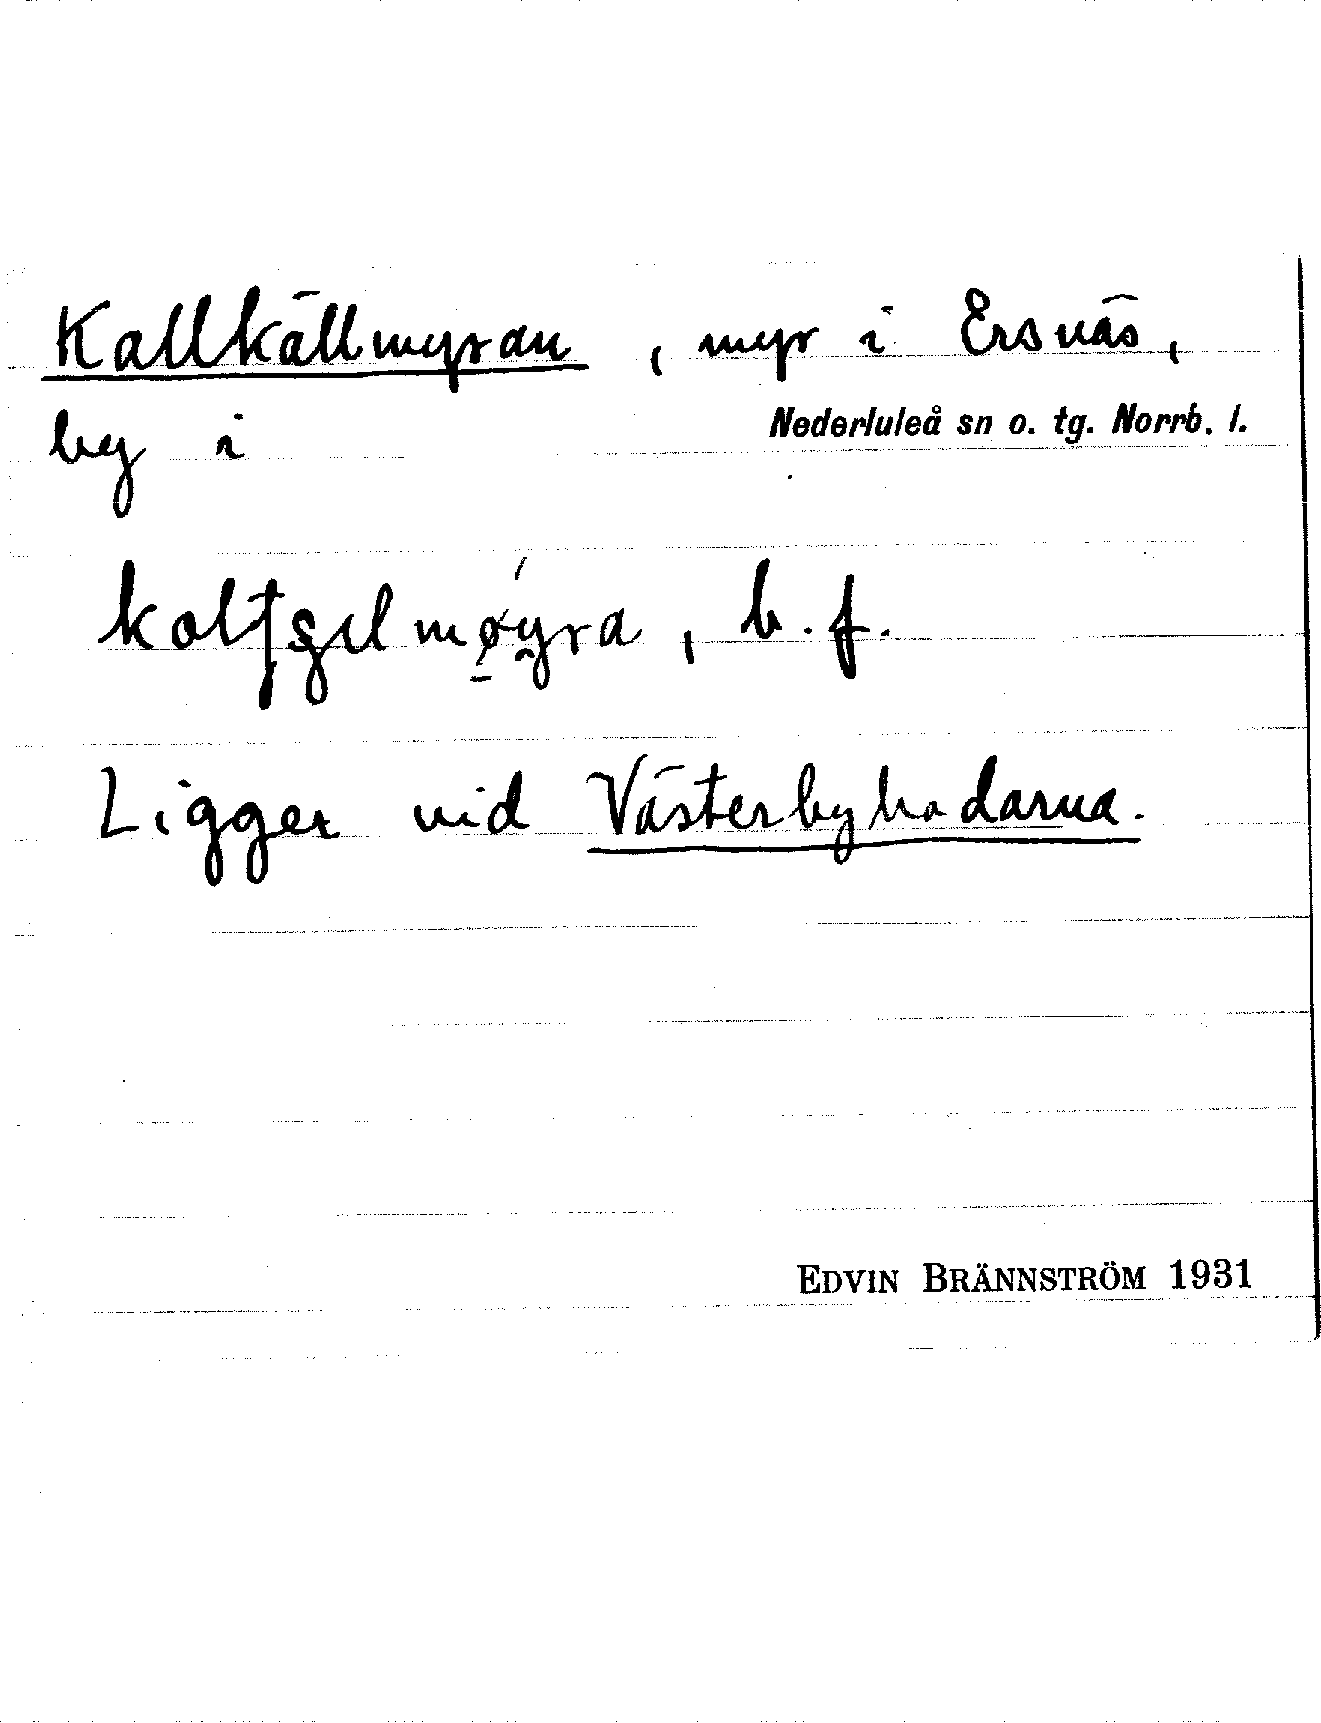 Kallkällmyran, myr i Ersnäs,
by i Nederluleå sn o. tg. Norrb. l.
b. f.
Ligger vid Västerbyhadarna.
EDVIN BRÄNNSTRÖM 1931